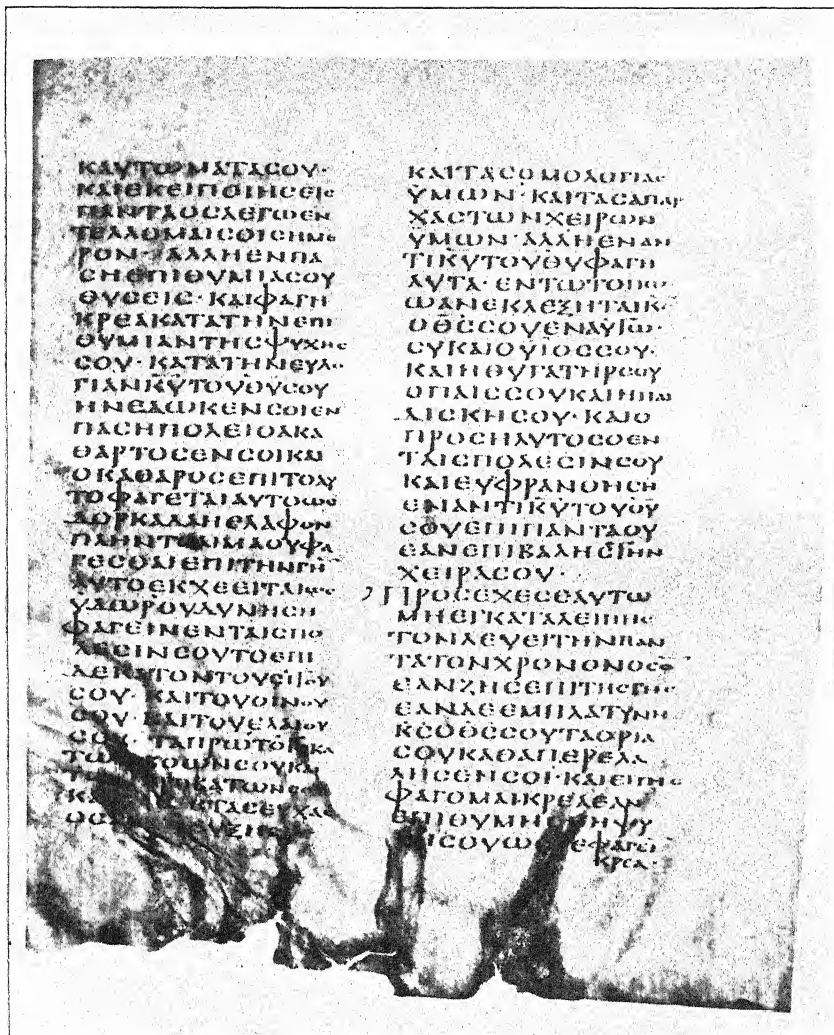 ΚΑΥΤΩΜΑΤΑϹΟΥ·
ΚΑΙΕΚΕΙΠΟΙΗϹΕΙϹ
ΠΑΝΤΑΟϹΑΕΓΩΕΝ
ΤΕΛΛΟΜΑΙϹΟΙϹΗΜΕ
ΡΟΝ· ΑΛΛΗΕΝΠΑ
ϹΗΕΠΙΘΥΜΙΑϹΟΥ
ΘΥϹΕΙϹ· ΚΑΙΦΑΓΗ
ΚΡΕΑΚΑΤΑΤΗΝΕΠΙ
ΘΥΜΙΑΝΤΗϹΨΥΧΗϹ
ϹΟΥ· ΚΑΤΑΤΗΝΕΥΛΟ
ΓΙΑΝΚ̅Υ̅ΤΟΥΘ̅Υ̅ϹΟΥ
ΗΝΕΔΩΚΕΝϹΟΙΕΝ
ΠΑϹΗΠΟΛΕΙΟΑΚΑ
ΘΑΡΤΟϹΕΝϹΟΙΚΑΙ
ΟΚΑΘΑΡΟϹΕΠΙΤΟΑΥ
ΤΟΦΑΓΕΤΑΙΑΥΤΟΩϹ
ΔΟΡΚΑΔΑΗΕΛΑΦΟΝ
ΠΛΗΝΤΟΑΙΜΑΟΥΦΑ
ΓΕϹΘΑΙΕΠΙΤΗΝΓΗ̅
ΑΥΤΟΕΚΧΕΕΙΤΑΙΩϹ
ΥΔΩΡΟΥΔΥΝΗϹΗ
ΦΑΓΕΙΝΕΝΤΑΙϹΠΟ
ΛΕϹΙΝϹΟΥΤΟΕΠΙ
ΔΕΚΑΤΟΝΤΟΥϹΙΤΟΥ
ϹΟΥ· ΚΑΙΤΟΥΟΙΝΟΥ
ϹΟΥ· ΚΑΙΤΟΥΕΛΑΙΟΥ
ϹΟΥ· ΤΑΠΡΩΤΟΤΟΚΑ
ΚΑΙΤΑϹΟΜΟΛΟΓΙΑϹ
ΥΜΩΝ· ΚΑΙΤΑϹΑΠΑΡ
ΧΑϹΤΩΝΧΕΙΡΩΝ
ΥΜΩΝ· ΑΛΛΗΕΝΑΝ
ΤΙΚ̅Υ̅ΤΟΥΘ̅Υ̅ΦΑΓΗ
ΑΥΤΑ· ΕΝΤΩΤΟΠΩ
ΩΑΝΕΚΛΕΞΗΤΑΙΚ̅Ϲ̅
ΟΘ̅Ϲ̅ϹΟΥΕΝΑΥΤΩ·
ϹΥΚΑΙΟΥΙΟϹϹΟΥ·
ΚΑΙΗΘΥΓΑΤΗΡϹΟΥ
ΟΠΑΙϹϹΟΥΚΑΙΗΠΑΙ
ΔΙϹΚΗϹΟΥ· ΚΑΙΟ
ΠΡΟϹΗΛΥΤΟϹΟΕΝ
ΤΑΙϹΠΟΛΕϹΙΝϹΟΥ
ΚΑΙΕΥΦΡΑΝΘΗϹΗ
ΕΝΑΝΤΙΚ̅Υ̅ΤΟΥΘ̅Υ̅
ϹΟΥΕΠΙΠΑΝΤΑΟΥ
ΕΑΝΕΠΙΒΑΛΗϹΤΗΝ
ΧΕΙΡΑϹΟΥ·
ΠΡΟϹΕΧΕϹΕΑΥΤΩ
ΜΗΕΓΚΑΤΑΛΕΙΠΗϹ
ΤΟΝΛΕΥΕΙΤΗΝΠΑΝ
ΤΑΤΟΝΧΡΟΝΟΝΟϹΟ̅
ΕΑΝΖΗϹΕΠΙΤΗϹΓΗϹ
ΕΑΝΔΕΕΜΠΛΑΤΥΝΗ
Κ̅Ϲ̅ΟΘ̅Ϲ̅ϹΟΥΤΑΟΡΙΑ
ϹΟΥΚΑΘΑΠΕΡΕΛΑ
ΛΗϹΕΝϹΟΙ· ΚΑΙΕΠΗϹ
ΦΑΓΟΜΑΙΚΡΕΑΕΑΝ
ΚΡΕΑ·